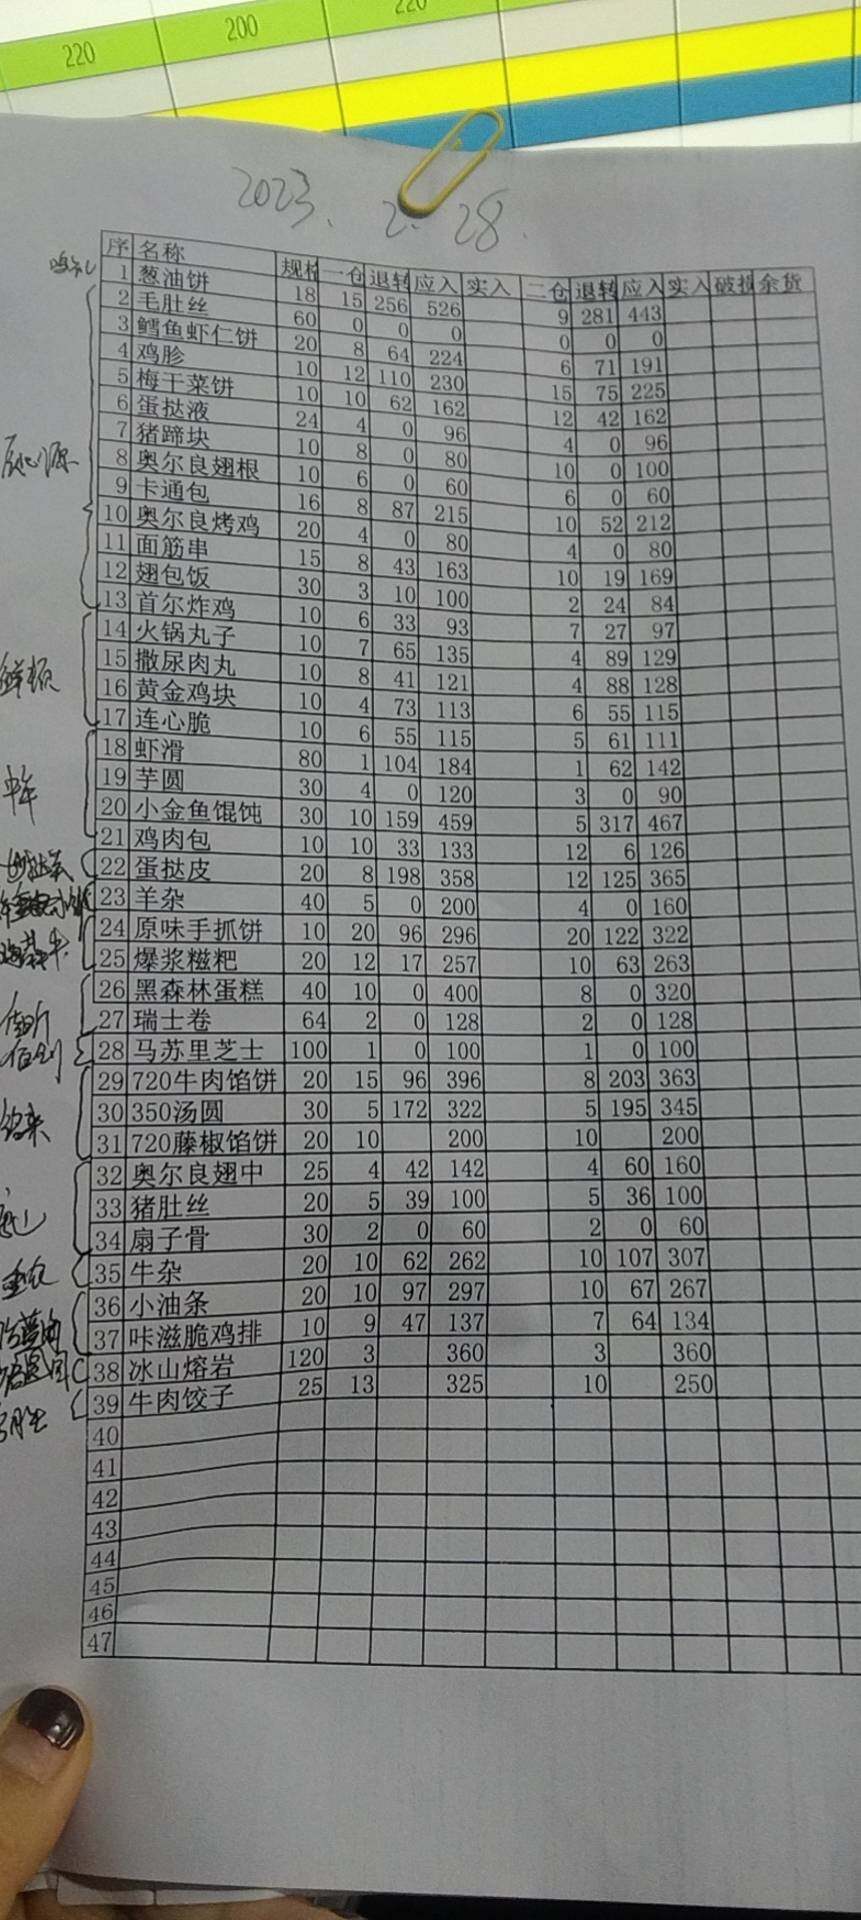 220 200 220
2023. 2. 28.
序 名称 规格 一仓 退转 应入 实入 二仓 退转 应入 实入 破损 余货
1 葱油饼 18 15 256 526 9 281 443
2 毛肚丝 60 0 0 0 0 0 0
3 鳕鱼虾仁饼 20 8 64 224 6 71 191
4 鸡胗 10 12 110 230 15 75 225
5 梅干菜饼 10 10 62 162 12 42 162
6 蛋挞液 24 4 0 96 4 0 96
7 猪蹄块 10 8 0 80 10 0 100
8 奥尔良翅根 10 6 0 60 6 0 60
9 卡通包 16 8 87 215 10 52 212
10 奥尔良烤鸡 20 4 0 80 4 0 80
11 面筋串 15 8 43 163 10 19 169
12 翅包饭 30 3 10 100 2 24 84
13 首尔炸鸡 10 6 33 93 7 27 97
14 火锅丸子 10 7 65 135 4 89 129
15 撒尿肉丸 10 8 41 121 4 88 128
16 黄金鸡块 10 4 73 113 6 55 115
17 连心脆 10 6 55 115 5 61 111
18 虾滑 80 1 104 184 1 62 142
19 芋圆 30 4 0 120 3 0 90
20 小金鱼馄饨 30 10 159 459 5 317 467
21 鸡肉包 10 10 33 133 12 6 126
22 蛋挞皮 20 8 198 358 12 125 365
23 羊杂 40 5 0 200 4 0 160
24 原味手抓饼 10 20 96 296 20 122 322
25 爆浆糍粑 20 12 17 257 10 63 263
26 黑森林蛋糕 40 10 0 400 8 0 320
27 瑞士卷 64 2 0 128 2 0 128
28 马苏里芝士 100 1 0 100 1 0 100
29 720牛肉馅饼 20 15 96 396 8 203 363
30 350汤圆 30 5 172 322 5 195 345
31 720藤椒馅饼 20 10 200 10 200
32 奥尔良翅中 25 4 42 142 4 60 160
33 猪肚丝 20 5 39 100 5 36 100
34 扇子骨 30 2 0 60 2 0 60
35 牛杂 20 10 62 262 10 107 307
36 小油条 20 10 97 297 10 67 267
37 咔滋脆鸡排 10 9 47 137 7 64 134
38 冰山熔岩 120 3 360 3 360
39 牛肉饺子 25 13 325 10 250
40
41
42
43
44
45
46
47